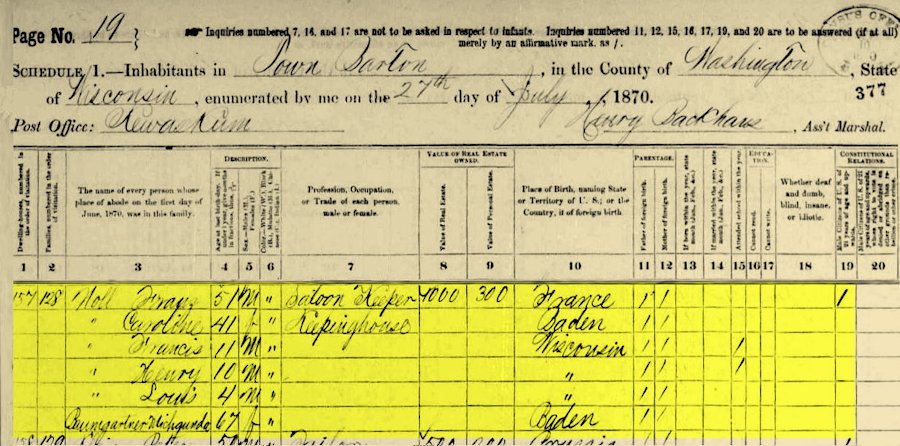 Page No. 19
Inquiries numbered 7, 16, and 17 are not to be asked in respect to infants. Inquiries numbered 11, 12, 15, 16, 17, 19, and 20 are to be answered (if at all)
merely by an affirmative mark, as /.
SCHEDULE 1.—Inhabitants in Town Barton, in the County of Washington, State
of Wisconsin, enumerated by me on the 27th day of July, 1870.
377
Post Office: Kewaskum
Henry Backhaus, Ass't Marshal.
DESCRIPTION. VALUE OF REAL ESTATE OWNED. PARENTAGE. EDUCATION. CONSTITUTIONAL RELATIONS.
Dwelling-houses, numbered in the order of visitation.
Families, numbered in the order of visitation.
The name of every person whose place of abode on the first day of June, 1870, was in this family.
Sex.—Males (M.), Females (F.)
Profession, Occupation, or Trade of each person, male or female.
Value of Real Estate.
Value of Personal Estate.
Place of Birth, naming State or Territory of U. S.; or the Country, if of foreign birth.
Father of foreign birth.
Mother of foreign birth.
If born within the year, state month (Jan., Feb., &c.)
If married within the year, state month (Jan., Feb., &c.)
Attended school within the year.
Cannot read.
Cannot write.
Whether deaf and dumb, blind, insane, or idiotic.
1 2 3 4 5 6 7 8 9 10 11 12 13 14 15 16 17 18 19 20
157 128 Noll Franz 51 M " Saloon Keeper 4000 300 France / / /
" Caroline 41 f " Keepinghouse Baden / /
" Francis 11 M " Wisconsin / / /
" Henry 10 M " " / / /
" Louis 4 M " " / /
Baumgartner 67 f " Baden / /